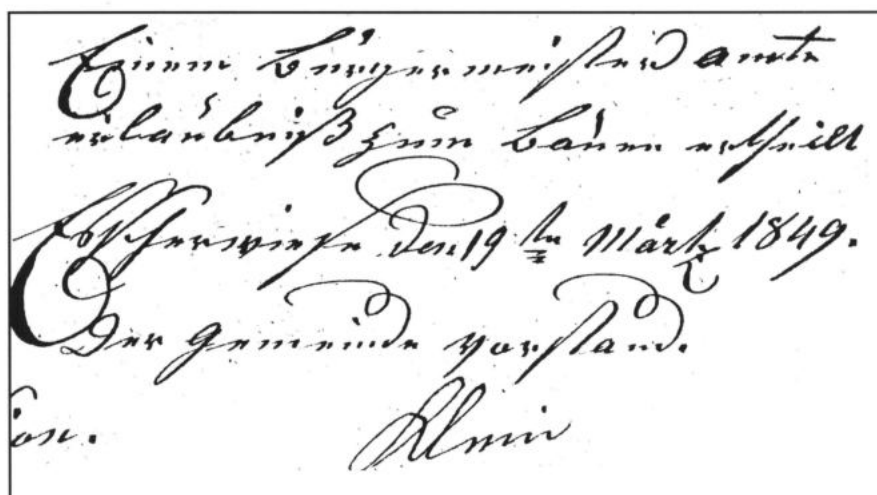 Einem Bürgermeister amte
erlaubniß zum Bauen ertheilt
den 19te Märtz 1849.
Der Gemeinde vorstand.
ion. Klein